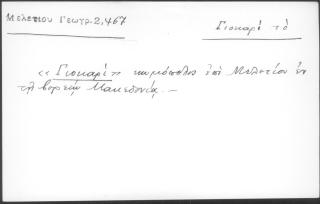 Μελετίου Γεωγρ. 2,467
Γισκαρί τό
«Γισκαρί» κωμόπολις ἐπὶ Μελετίου ἐν
τῇ βορείῳ Μακεδονίᾳ. —